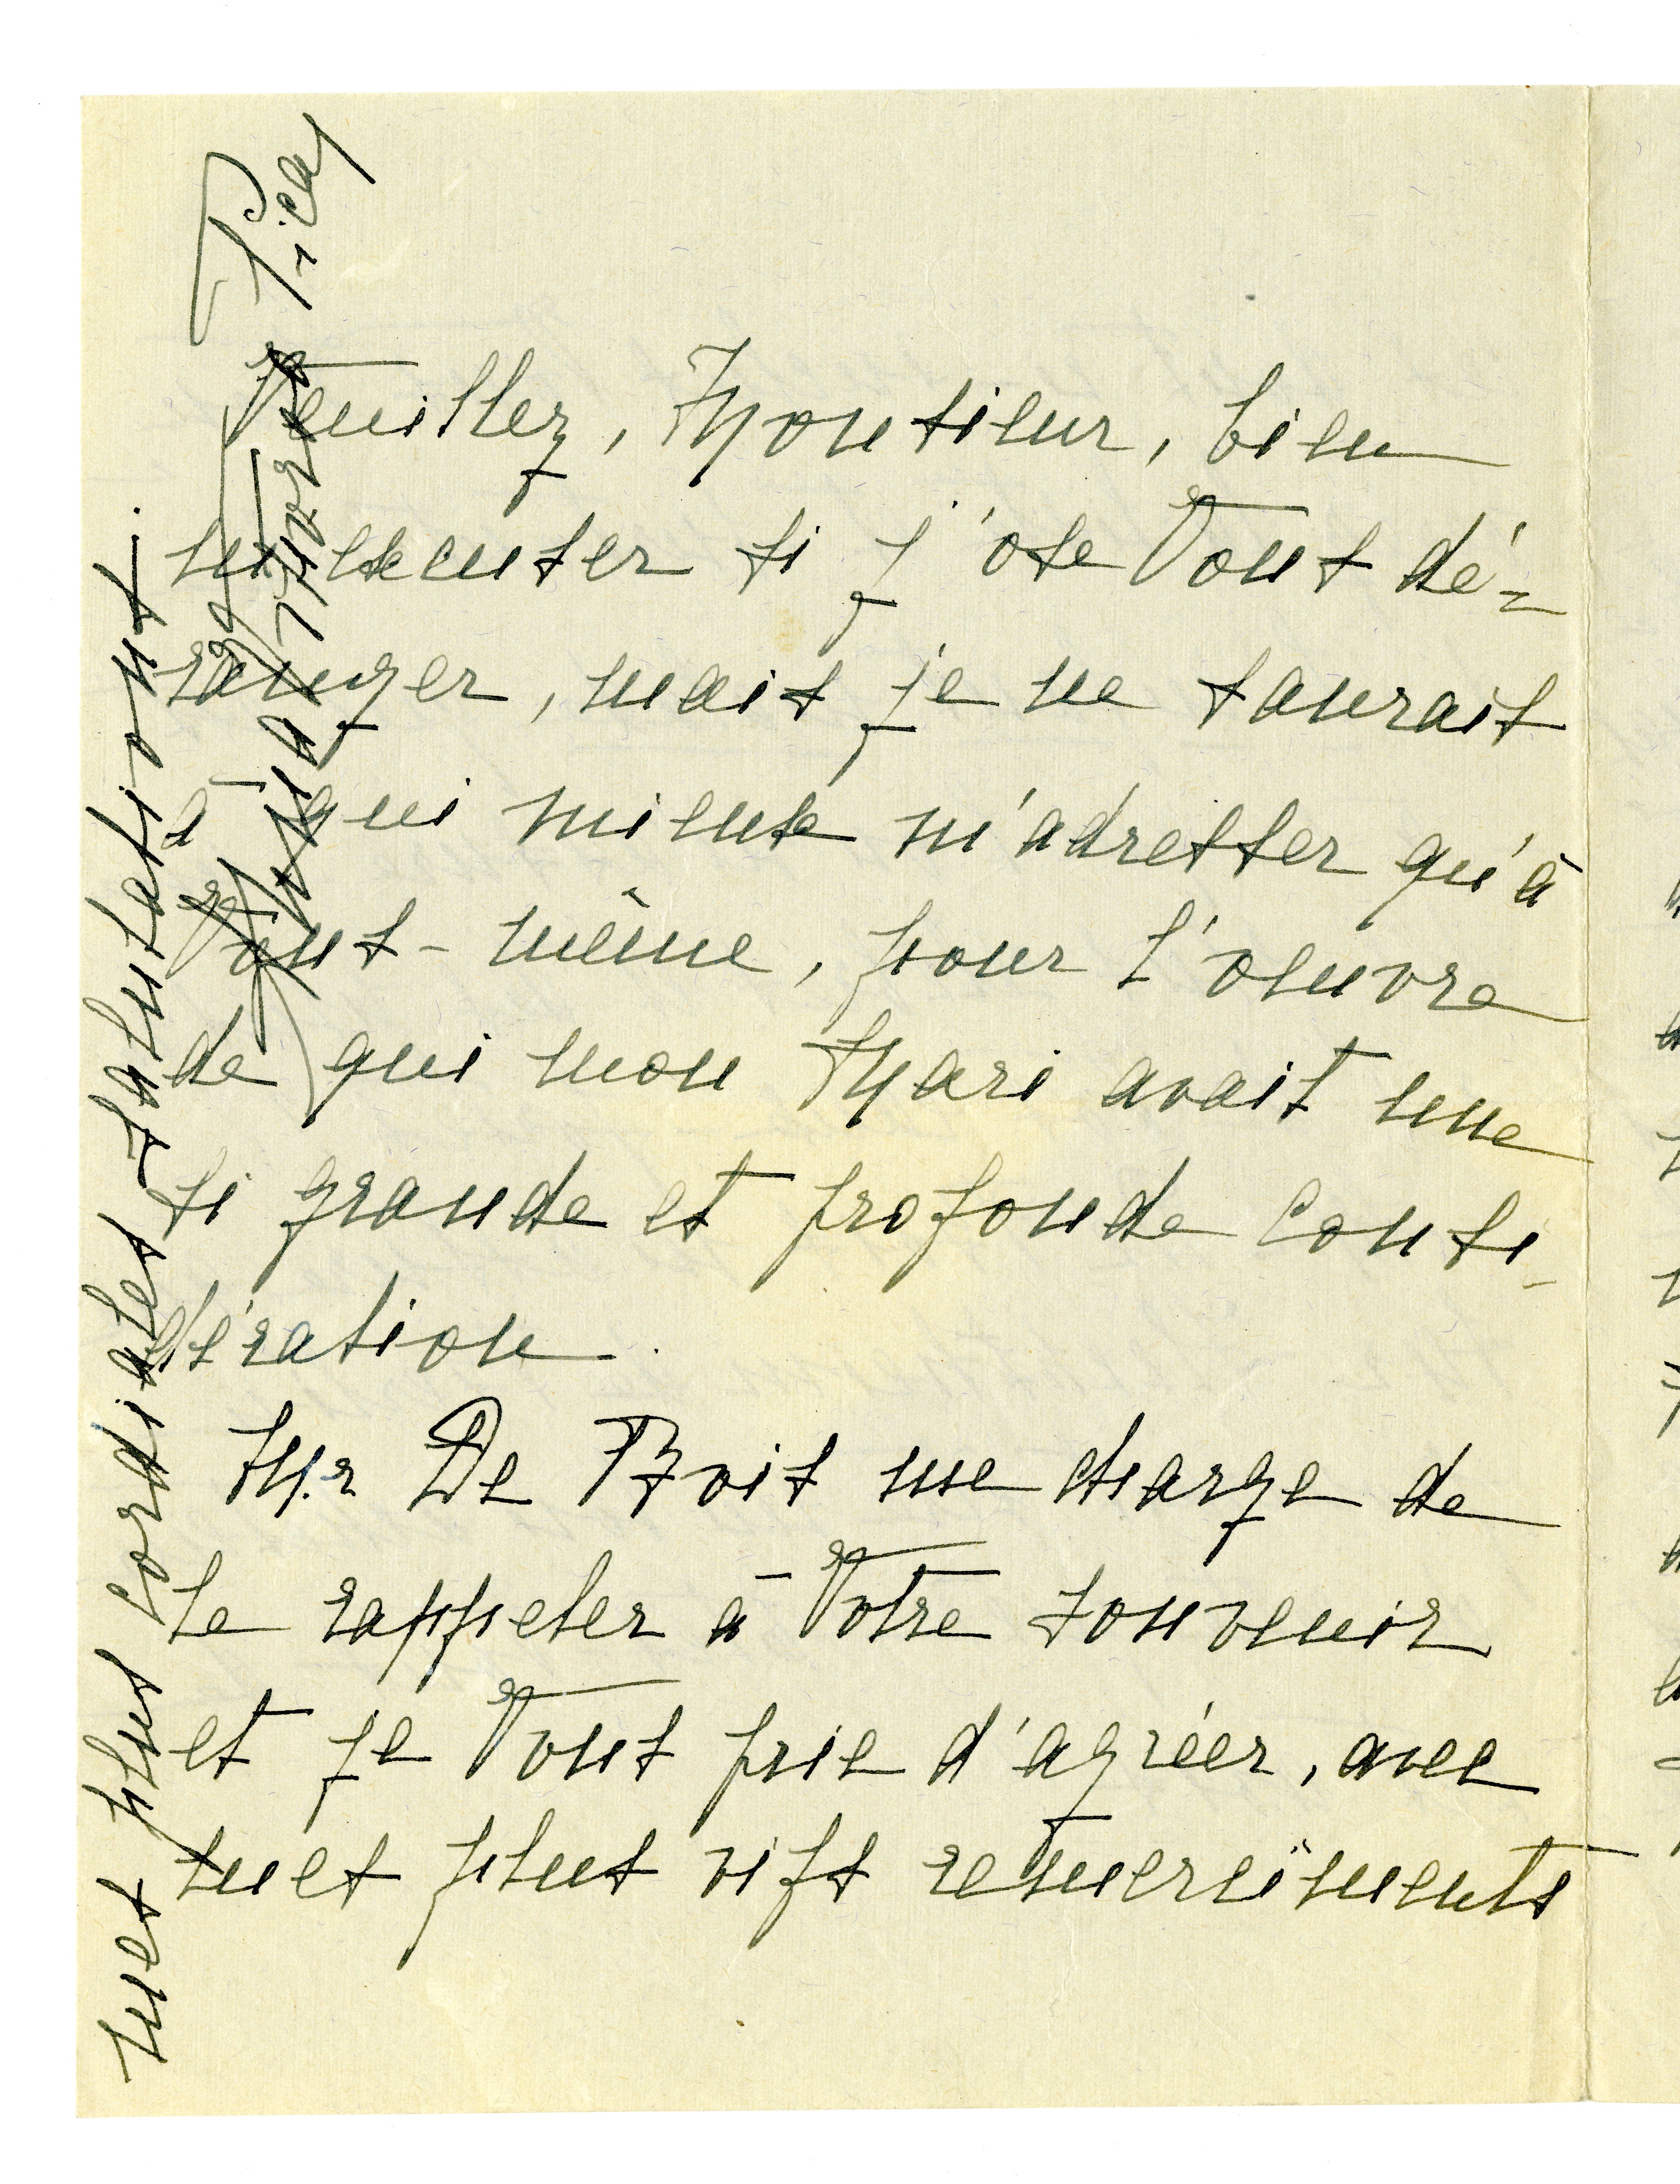 Veuillez, Monsieur, bien
m'excuser si j'ose Vous dé=
ranger, mais je ne saurais
à qui mieux m'adresser qu'à
Vous-même, pour l'oeuvre
de qui mon Mari avait une
si grande et profonde consi-
dération.
Mr De Bois me charge de
le rappeler à Votre souvenir
et je Vous prie d'agréer, avec
mes plus vifs remerciments
mes plus cordiales salutations.
Pica